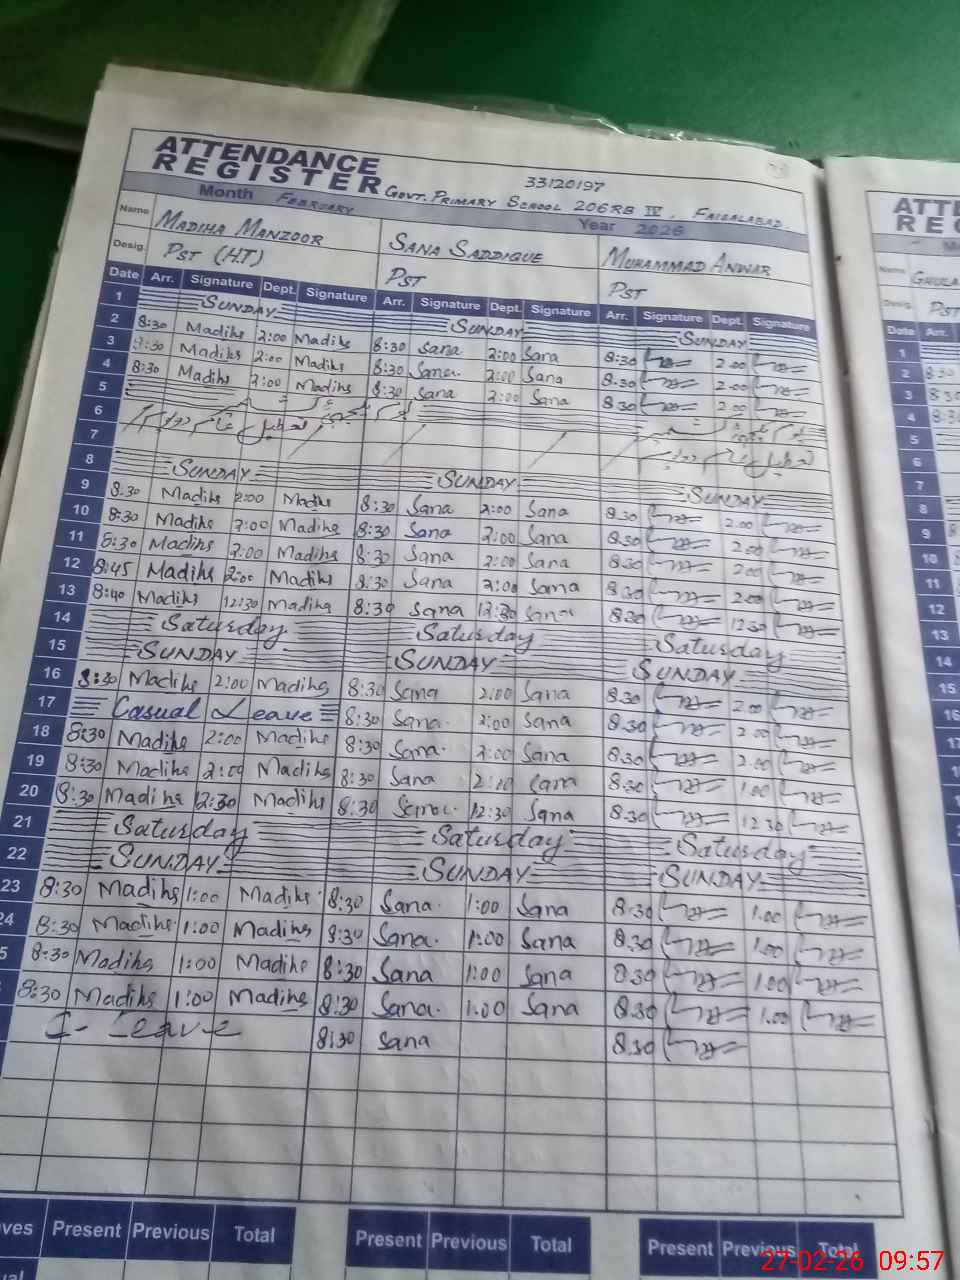 ATTENDANCE
REGISTER GOVT. PRIMARY SCHOOL 206RB IV, FAISALABAD.
33120197
Month FEBRUARY Year 2026
Name MADIHA MANZOOR SANA SADDIQUE MUHAMMAD ANWAR
Desig. PST (HT) PST PST
Date Arr. Signature Dept. Signature Arr. Signature Dept. Signature Arr. Signature Dept. Signature
1 SUNDAY SUNDAY SUNDAY
2 8:30 Madihs 2:00 Madihs 8:30 Sana 2:00 Sana 8.30 2.00
3 8:30 Madihs 2:00 Madihs 8:30 Sana 2:00 Sana 8.30 2.00
4 8:30 Madihs 2:00 Madihs 8:30 Sana 2:00 Sana 8.30 2.00
5
6 تعطیل عام
7
8 SUNDAY SUNDAY SUNDAY
9 8:30 Madihs 2:00 Madihs 8:30 Sana 2:00 Sana 8.30 2.00
10 8:30 Madihs 2:00 Madihs 8:30 Sana 2:00 Sana 8.30 2.00
11 8:30 Madihs 2:00 Madihs 8:30 Sana 2:00 Sana 8.30 2.00
12 8:45 Madihs 2:00 Madihs 8:30 Sana 2:00 Sana 8.30 2.00
13 8:40 Madihs 12:30 Madihs 8:30 Sana 12:30 Sana 8.30 12.30
14 Saturday Saturday Saturday
15 SUNDAY SUNDAY SUNDAY
16 8:30 Madihs 2:00 Madihs 8:30 Sana 2:00 Sana 8.30 2.00
17 Casual Leave 8:30 Sana 2:00 Sana 8.30 2.00
18 8:30 Madihs 2:00 Madihs 8:30 Sana 2:00 Sana 8.30 2.00
19 8:30 Madihs 2:00 Madihs 8:30 Sana 2:00 Sana 8.30 1.00
20 8:30 Madihs 12:30 Madihs 8:30 Sana 12:30 Sana 8.30 12.30
21 Saturday Saturday Saturday
22 SUNDAY SUNDAY SUNDAY
23 8:30 Madihs 1:00 Madihs 8:30 Sana 1:00 Sana 8.30 1.00
24 8:30 Madihs 1:00 Madihs 8:30 Sana 1:00 Sana 8.30 1.00
5 8:30 Madihs 1:00 Madihs 8:30 Sana 1:00 Sana 8.30 1.00
8:30 Madihs 1:00 Madihs 8:30 Sana 1:00 Sana 8.30 1.00
C-Leave 8:30 Sana 8.30
ves Present Previous Total Present Previous Total Present Previous Total
ual
ATT
REG
Name GHULA
Desig. PST
Date Arr.
1
2 8:30
3 8:30
4 8:30
5
6
7
8
9
10
11
12
13
14
15
16
17
27-02-26 09:57